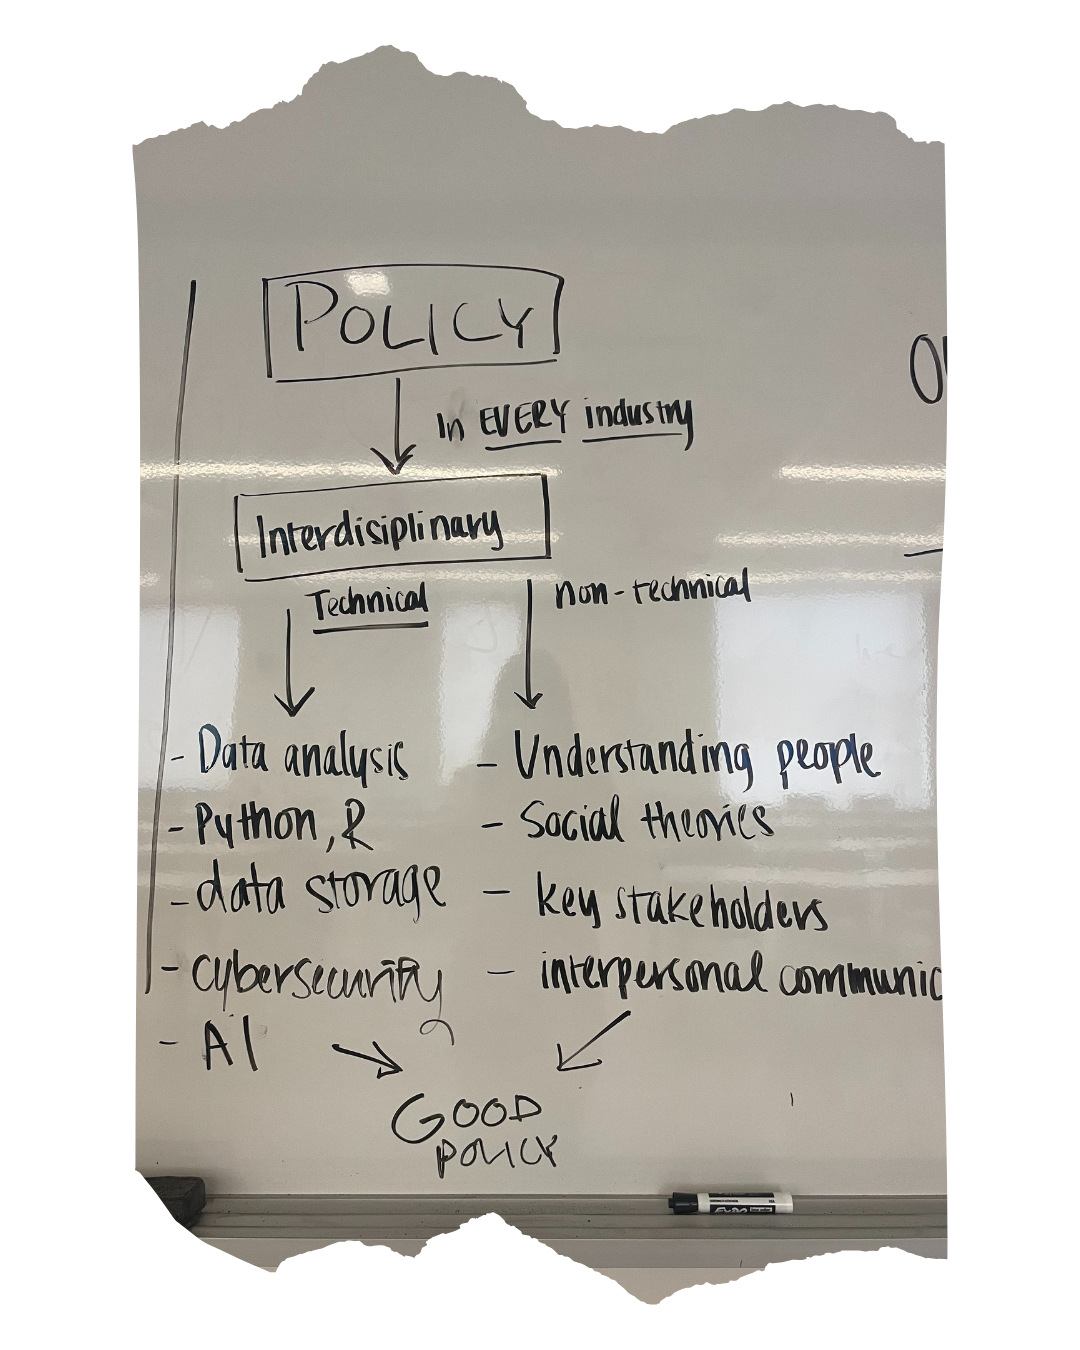 POLICY
In EVERY industry
Interdisiplinary
Technical
non-technical
- Data analysis
- Python, R
- data storage
- cybersecurity
- AI
- Understanding people
- Social theories
- key stakeholders
- interpersonal communic
GOOD
POLICY
EXPO